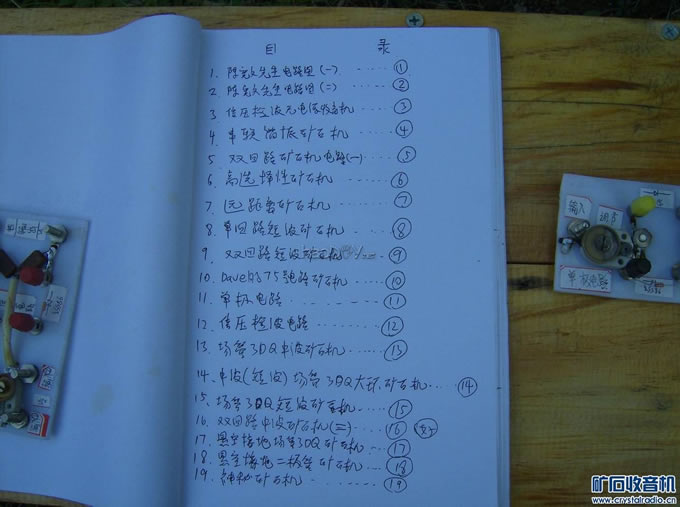 目 录
1. 陈先生电路图(一) ······ ①
2. 陈先生电路图(二) ······ ②
3 倍压检波无电源收音机 ③
4 串联谐振矿石机 ····· ④
5 双回路矿石机电路(一) ··· ⑤
6. 高选择性矿石机 ··· ⑥
7. 远距离矿石机 ····· ⑦
8. 单回路短波矿石机 ···· ⑧
9. 双回路短波矿石机 ⑨
10. Dave的75號矿石机 ⑩
11. 单板电路 ······ ⑪
12. 倍压检波电路 ······· ⑫
13. 场管3DQ中波矿石机 ⑬
14. 中波(短波)场管3DQ大环矿石机 ··· ⑭
15. 场管3DQ短波矿石机 ···· ⑮
16. 双回路中波矿石机(二) ·· ⑯
17. 场管3DQ矿石机 ·· ⑰
18. 二极管矿石机 ··· ⑱
19. 矿石机 ········ ⑲
输入
调台
单板电路
矿石收音机
www.crystalradio.cn